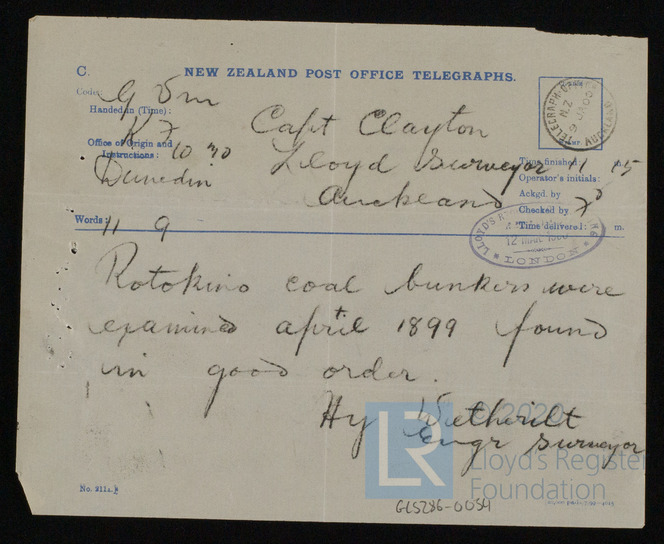 C. NEW ZEALAND POST OFFICE TELEGRAPHS.
Code:
Handed in (Time):
Office of Origin and
Instructions: 10 30
Dunedin
Capt Clayton
Lloyd Surveyor
Auckland
TELEGRAPH OFFICE
N.Z.
9 JA 00
AUCKLAND
Time finished: 11 15 m.
Operator's initials:
Ackgd. by
Checked by
Time delivered: m.
Words: 11 9
LLOYD'S
LONDON
Rotokino coal bunkers were
examined april 1899 found
in good order.
Hy Wetherilt
engr surveyor
© 2020
LR
Lloyd's Register
Foundation
No. 211A.
GLS286-0054